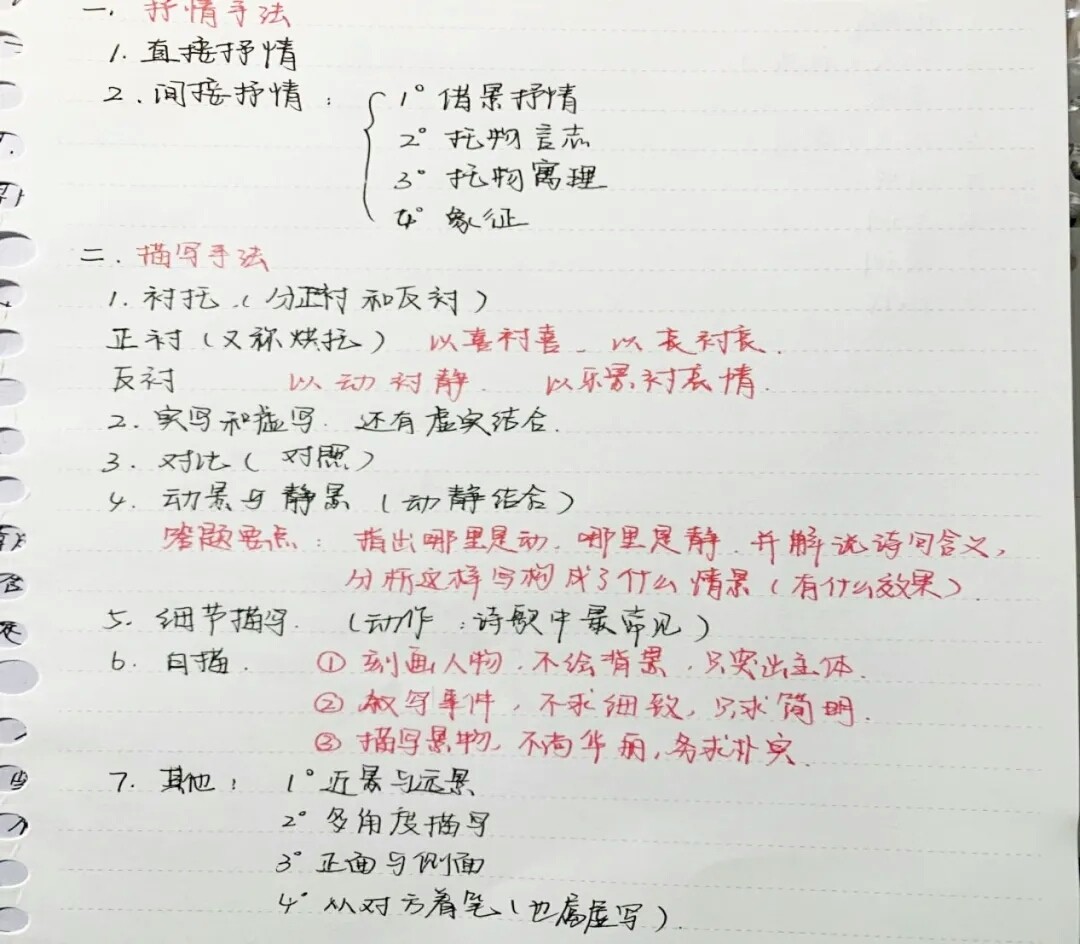 一. 抒情手法
1. 直接抒情
2. 间接抒情: 1° 借景抒情
2° 托物言志
3° 托物寓理
4° 象征
二. 描写手法
1. 衬托.(分正衬和反衬)
正衬(又称烘托) 以喜衬喜. 以哀衬哀.
反衬 以动衬静. 以乐景衬哀情.
2. 实写和虚写. 还有虚实结合.
3. 对比(对照)
4. 动景与静景(动静结合)
答题要点: 指出哪里是动.哪里是静.并解说诗句含义,
分析这样写构成了什么情景(有什么效果).
5. 细节描写. (动作:诗歌中最常见)
6. 白描. ① 刻画人物.不绘背景.只突出主体.
② 叙写事件,不求细致,只求简明.
③ 描写景物,不尚华丽,务求朴实.
7. 其他: 1° 近景与远景
2° 多角度描写
3° 正面与侧面
4° 从对方着笔(也属虚写).